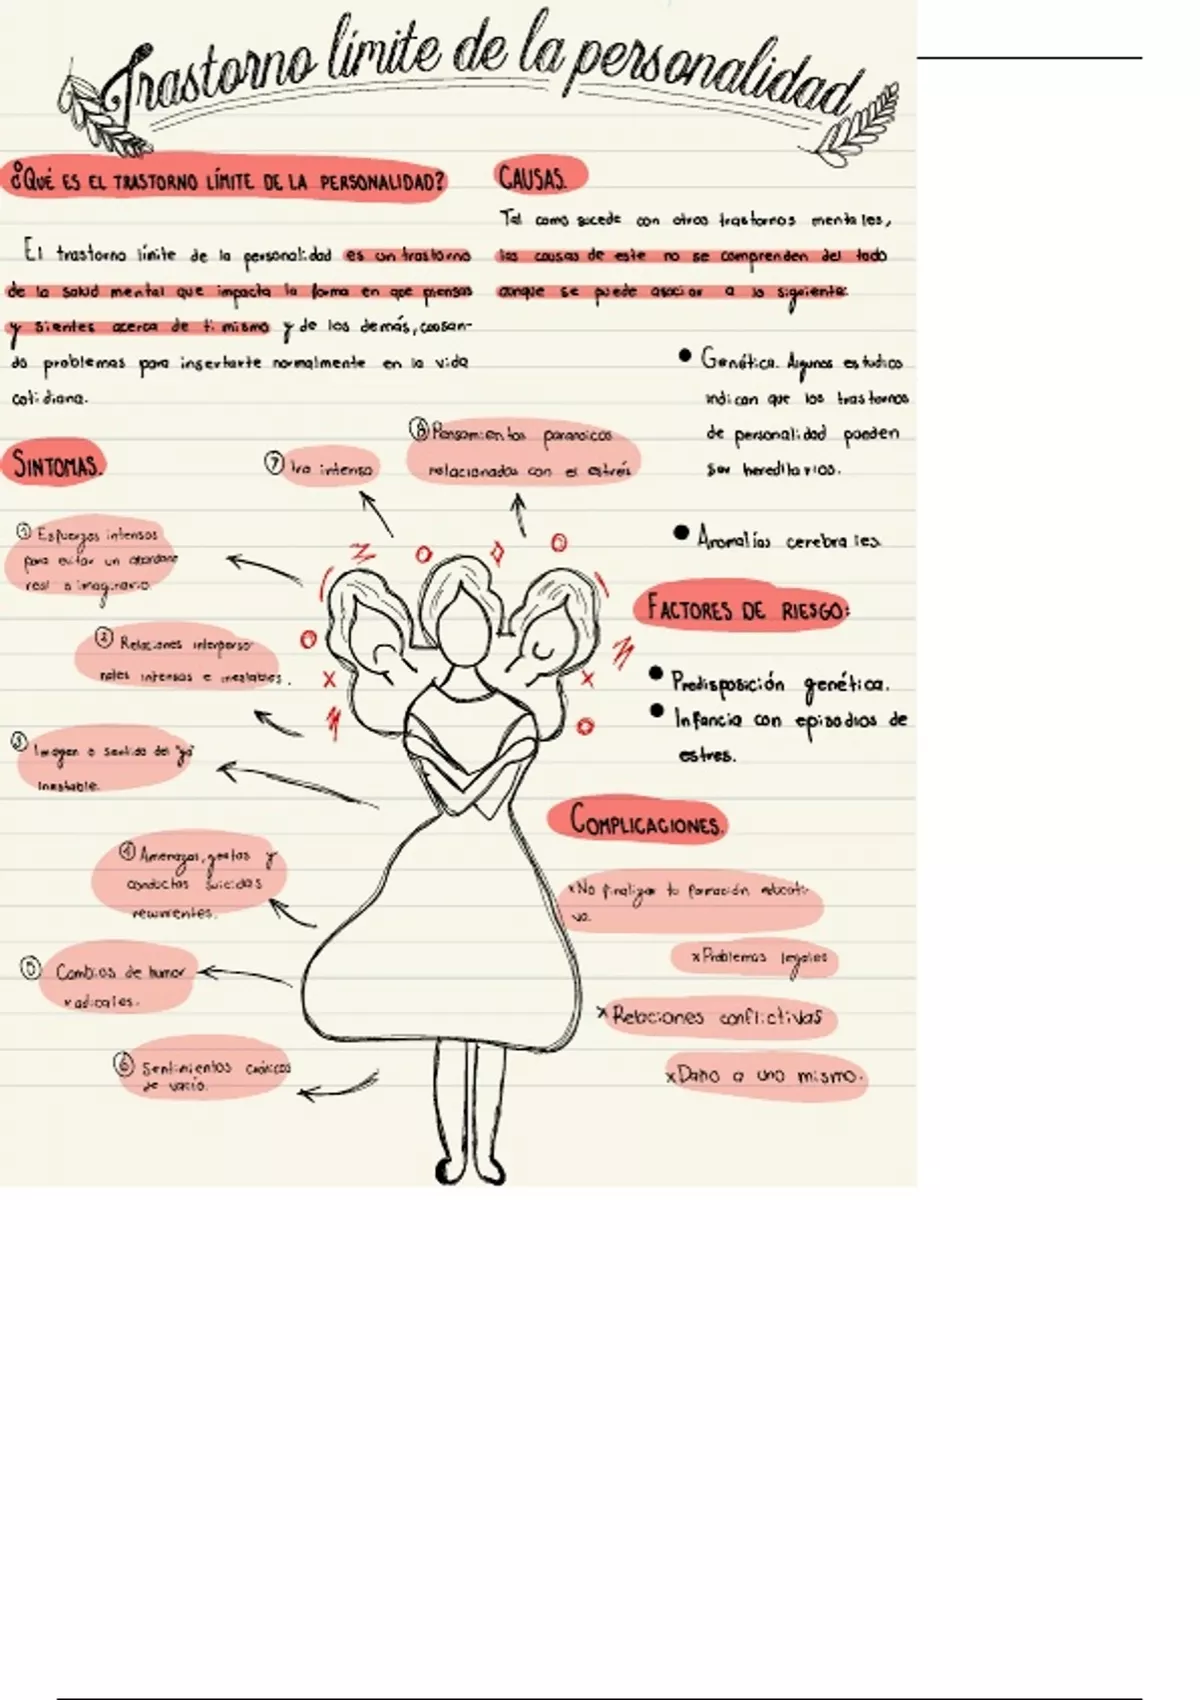 Trastorno límite de la personalidad
¿QUÉ ES EL TRASTORNO LÍMITE DE LA PERSONALIDAD?
El trastorno límite de la personalidad es un trastorno
de la salud mental que impacta la forma en que piensas
y sientes acerca de ti mismo y de los demás, causan-
do problemas para insertarte normalmente en la vida
cotidiana.
CAUSAS.
Tal como sucede con otros trastornos mentales,
las causas de este no se comprenden del todo
aunque se puede asociar a lo siguiente:
● Genética. Algunos estudios
indican que los trastornos
de personalidad pueden
ser hereditarios.
● Anomalías cerebrales
FACTORES DE RIESGO:
● Predisposición genética.
● Infancia con episodios de
estres.
COMPLICACIONES.
x No finalizar tu formación educati-
va.
x Problemas legales
x Relaciones conflictivas
x Daño a uno mismo.
SINTOMAS.
① Esfuerzos intensos
para evitar un abandono
real o imaginario.
② Relaciones interperso-
nales intensas e inestables.
③ Imagen o sentido del "yo"
inestable.
④ Amenazas, gestos y
conductas suicidas
recurrentes.
⑤ Cambios de humor
radicales.
⑥ Sentimientos crónicos
de vacío.
⑦ Ira intensa
⑧ Pensamientos paranoicos
relacionados con el estrés